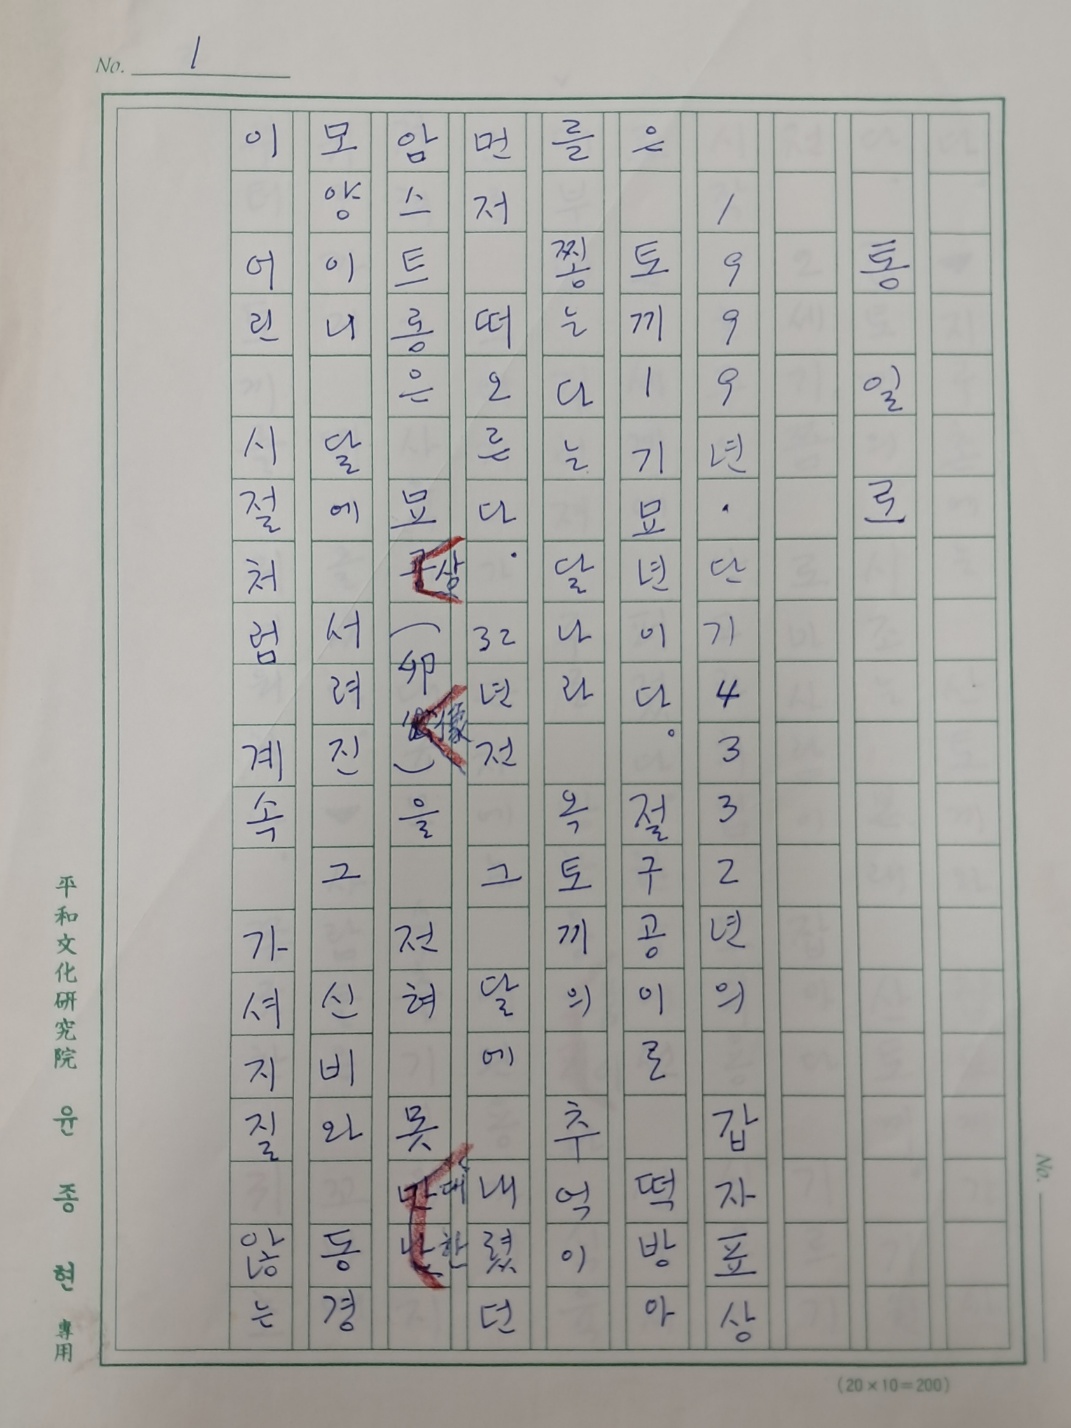 No. 1
통일로
1999년·단기4332년의 갑자표상
은 토끼 1기묘년이다。절구공이로 떡방아
를 찧는다는 달나라 옥토끼의 추억이
먼저 떠오른다. 32년전 그 달에 내렸던
암스트롱은 묘상(卯像)을 전혀 못 대한
모양이니 달에 서려진 그 신비와 동경
이 어린 시절처럼 계속 가셔지질 않는
平和文化研究院 윤종현 專用
No.
(20×10=200)